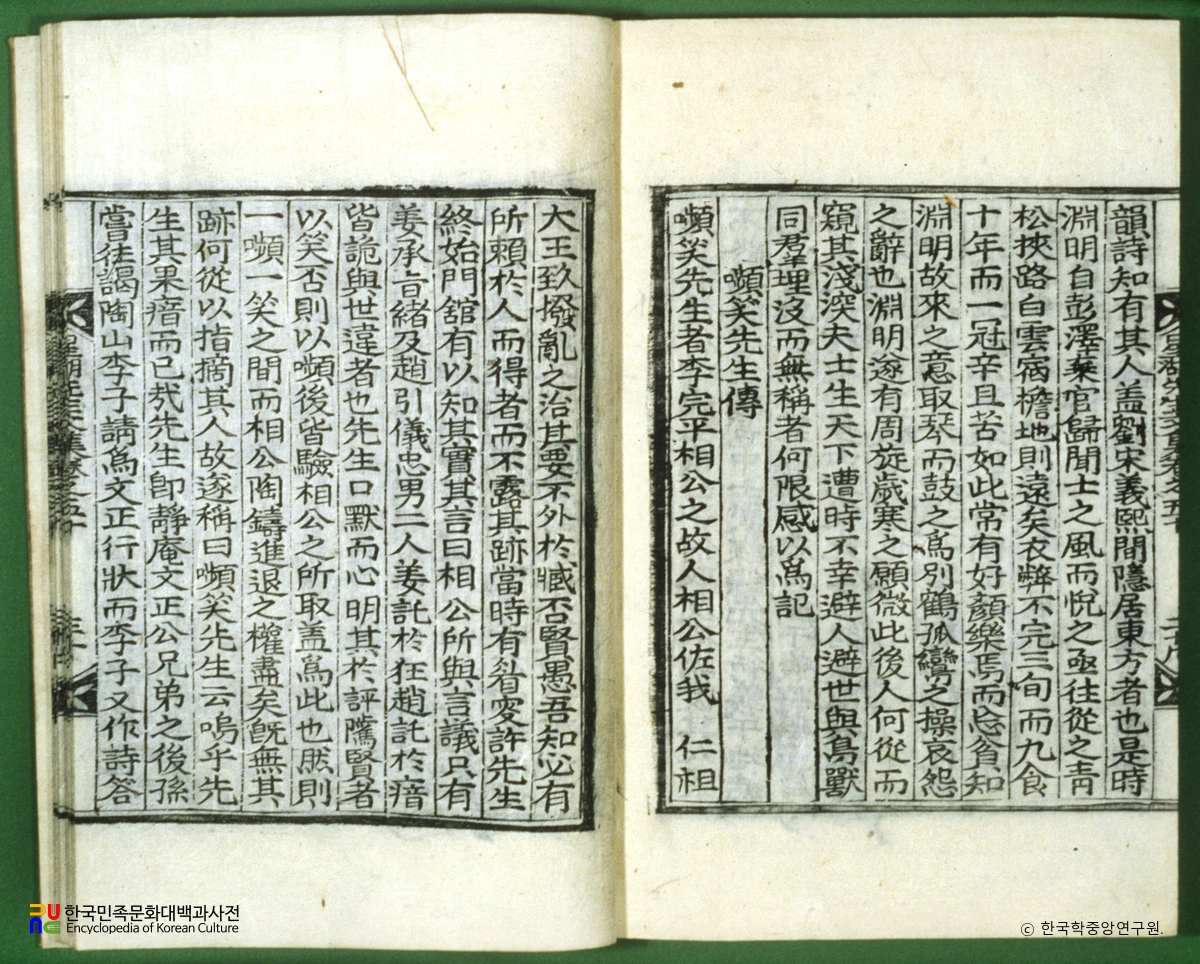 韻詩知有其人盖劉宋義熙間隱居東方者也是時
淵明自彭澤棄官歸聞士之風而悅之亟往從之靑
松挾路白雲宿檐地則遠矣衣弊不完三旬而九食
十年而一冠辛且苦如此常有好顔樂焉而忘貧知
淵明故來之意取琴而鼓之爲別鶴孤鸞之操哀怨
之辭也淵明遂有周旋歲寒之願微此後人何從而
窺其淺深夫士生天下遭時不幸避人避世與鳥獸
同羣埋沒而無稱者何限感以爲記
嚬笑先生傳
嚬笑先生者李完平相公之故人相公佐我 仁祖
大王致撥亂之治其要不外於臧否賢愚吾知必有
所賴於人而得者而不露其跡當時有眷愛許先生
終始門舘有以知其實其言曰相公所與言議只有
姜承旨緖及趙引儀忠男二人姜託於狂趙託於瘖
皆詭與世違者也先生口默而心明其於評隲賢者
以笑否則以嚬後皆驗相公之所取盖爲此也然則
一嚬一笑之間而相公陶鑄進退之權盡矣旣無其
跡何從以指摘其人故遂稱曰嚬笑先生云嗚乎先
生其果瘖而已哉先生卽靜庵文正公兄弟之後孫
嘗往謁陶山李子請爲文正行狀而李子又作詩答
한국민족문화대백과사전
Encyclopedia of Korean Culture
© 한국학중앙연구원.